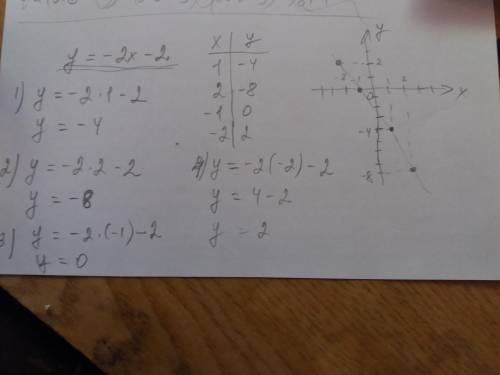 y = -2x-2
1) y = -2·1-2
y = -4
2) y = -2·2-2
y = -8
3) y = -2·(-1)-2
y = 0
x | y
1 | -4
2 | -8
-1 | 0
-2 | 2
4) y = -2(-2)-2
y = 4-2
y = 2
y
2
-2 -1 0 1 2
x
-4
-8